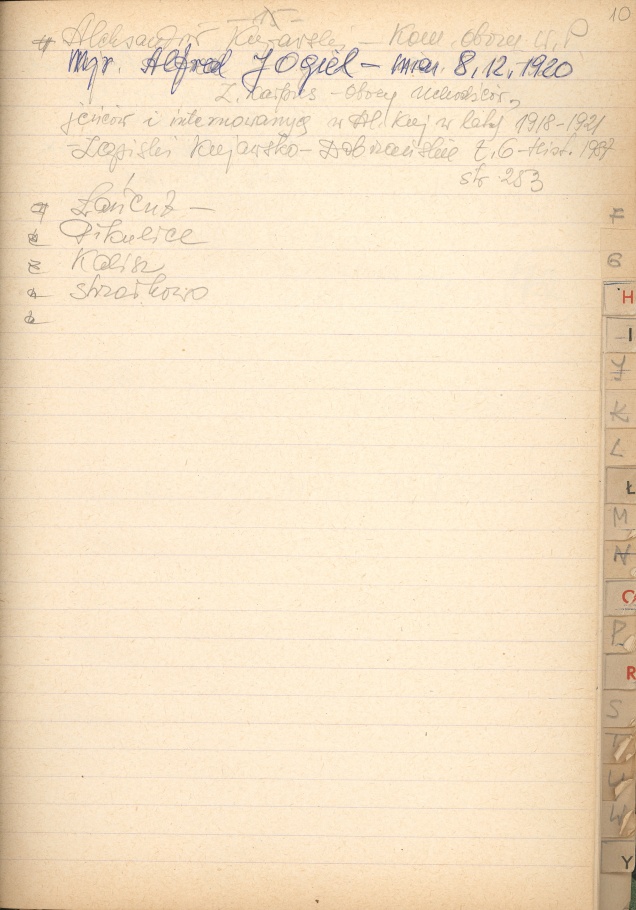 15
10
Aleksandrów Kujawski – Kom. obozu W.P
Mjr. Alfred JOGIEL – mian. 8.12.1920
Z. Karpus – obozy uchodźców,
jeńców i internowanych w Al. Kuj w latach 1918-1921
– Zapiski Kujawsko-Dobrzyńskie t. 6 – Hist. 1987
str. 253
Łańcut –
Pikulice
Kalisz
Strzałkowo
F
G
H
I
J
K
L
Ł
M
N
O
P
R
S
T
U
W
Y